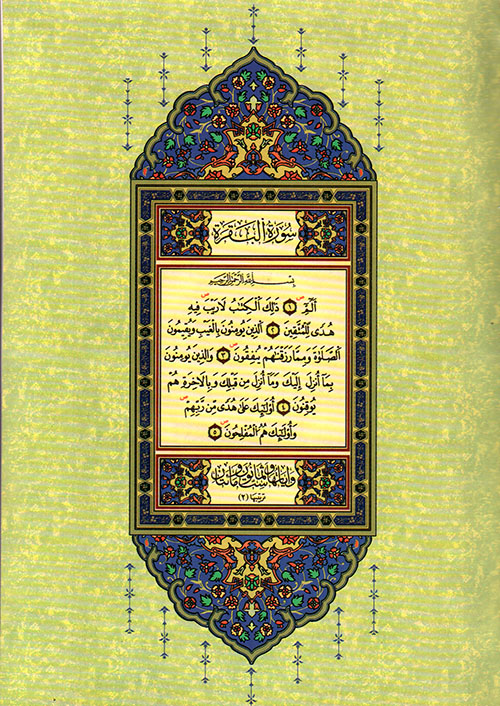 سُورَةُ الْبَقَرَةِ
بِسْمِ اللَّهِ الرَّحْمَٰنِ الرَّحِيمِ
الٓمٓ ﴿١﴾ ذَٰلِكَ الْكِتَٰبُ لَا رَيْبَ فِيهِ
هُدًى لِّلْمُتَّقِينَ ﴿٢﴾ الَّذِينَ يُؤْمِنُونَ بِالْغَيْبِ وَيُقِيمُونَ
الصَّلَوٰةَ وَمِمَّا رَزَقْنَٰهُمْ يُنفِقُونَ ﴿٣﴾ وَالَّذِينَ يُؤْمِنُونَ
بِمَآ أُنزِلَ إِلَيْكَ وَمَآ أُنزِلَ مِن قَبْلِكَ وَبِالْءَاخِرَةِ هُمْ
يُوقِنُونَ ﴿٤﴾ أُو۟لَٰٓئِكَ عَلَىٰ هُدًى مِّن رَّبِّهِمْ
وَأُو۟لَٰٓئِكَ هُمُ الْمُفْلِحُونَ ﴿٥﴾
وآياتها مائتان وست وثمانون
ترتيبها (٢)